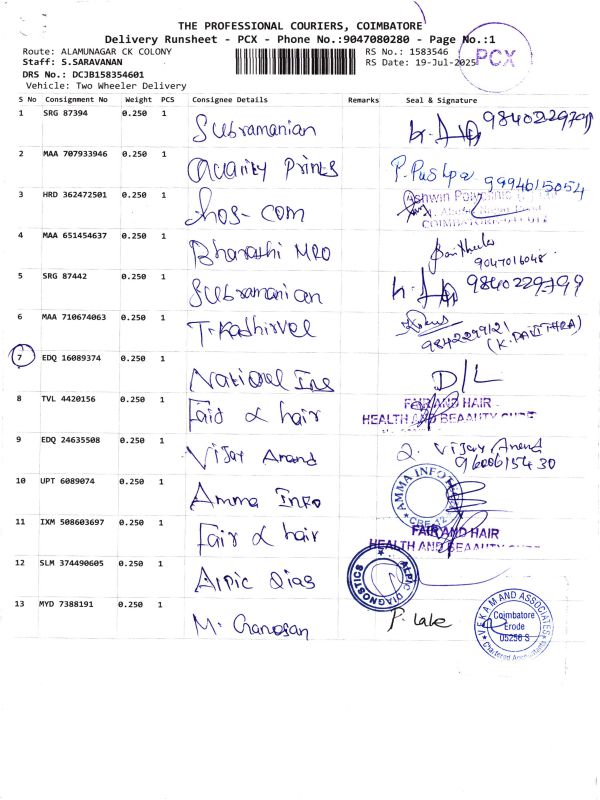 THE PROFESSIONAL COURIERS, COIMBATORE
Delivery Runsheet - PCX - Phone No.:9047080280 - Page No.:1
Route: ALAMUNAGAR CK COLONY
RS No.: 1583546
PCX
Staff: S.SARAVANAN
RS Date: 19-Jul-2025
DRS No.: DCJB158354601
Vehicle: Two Wheeler Delivery
S No Consignment No Weight PCS Consignee Details Remarks Seal & Signature
1 SRG 87394 0.250 1 Subramanian
2 MAA 707933946 0.250 1 Quality Prints P. Pushpa 9994615054
3 HRD 362472501 0.250 1 hos-com Ashwin Polyclinic
4 MAA 651454637 0.250 1 Bharathi MRO 9047016048
5 SRG 87442 0.250 1 Subramanian
6 MAA 710674063 0.250 1 T. Kadhirvel
(K.PAVITHRA)
7 EDQ 16089374 0.250 1 National Ins D/L
8 TVL 4420156 0.250 1 Fair & hair FAIR AND HAIR
HEALTH AND BEAAUTY
9 EDQ 24635508 0.250 1 Vijay Anand Vijay Anand
9600615430
10 UPT 6089074 0.250 1 Amma Info AMMA INFO
CBE-12
11 IXM 508603697 0.250 1 Fair & hair FAIR AND HAIR
HEALTH AND BEAAUTY
12 SLM 374490605 0.250 1 Alpic Dias ALPIC DIAGNOSTICS
13 MYD 7388191 0.250 1 M. P. Lake
VEKAM AND ASSOCIATES
Coimbatore
Erode
05256 S
Chartered Accountants